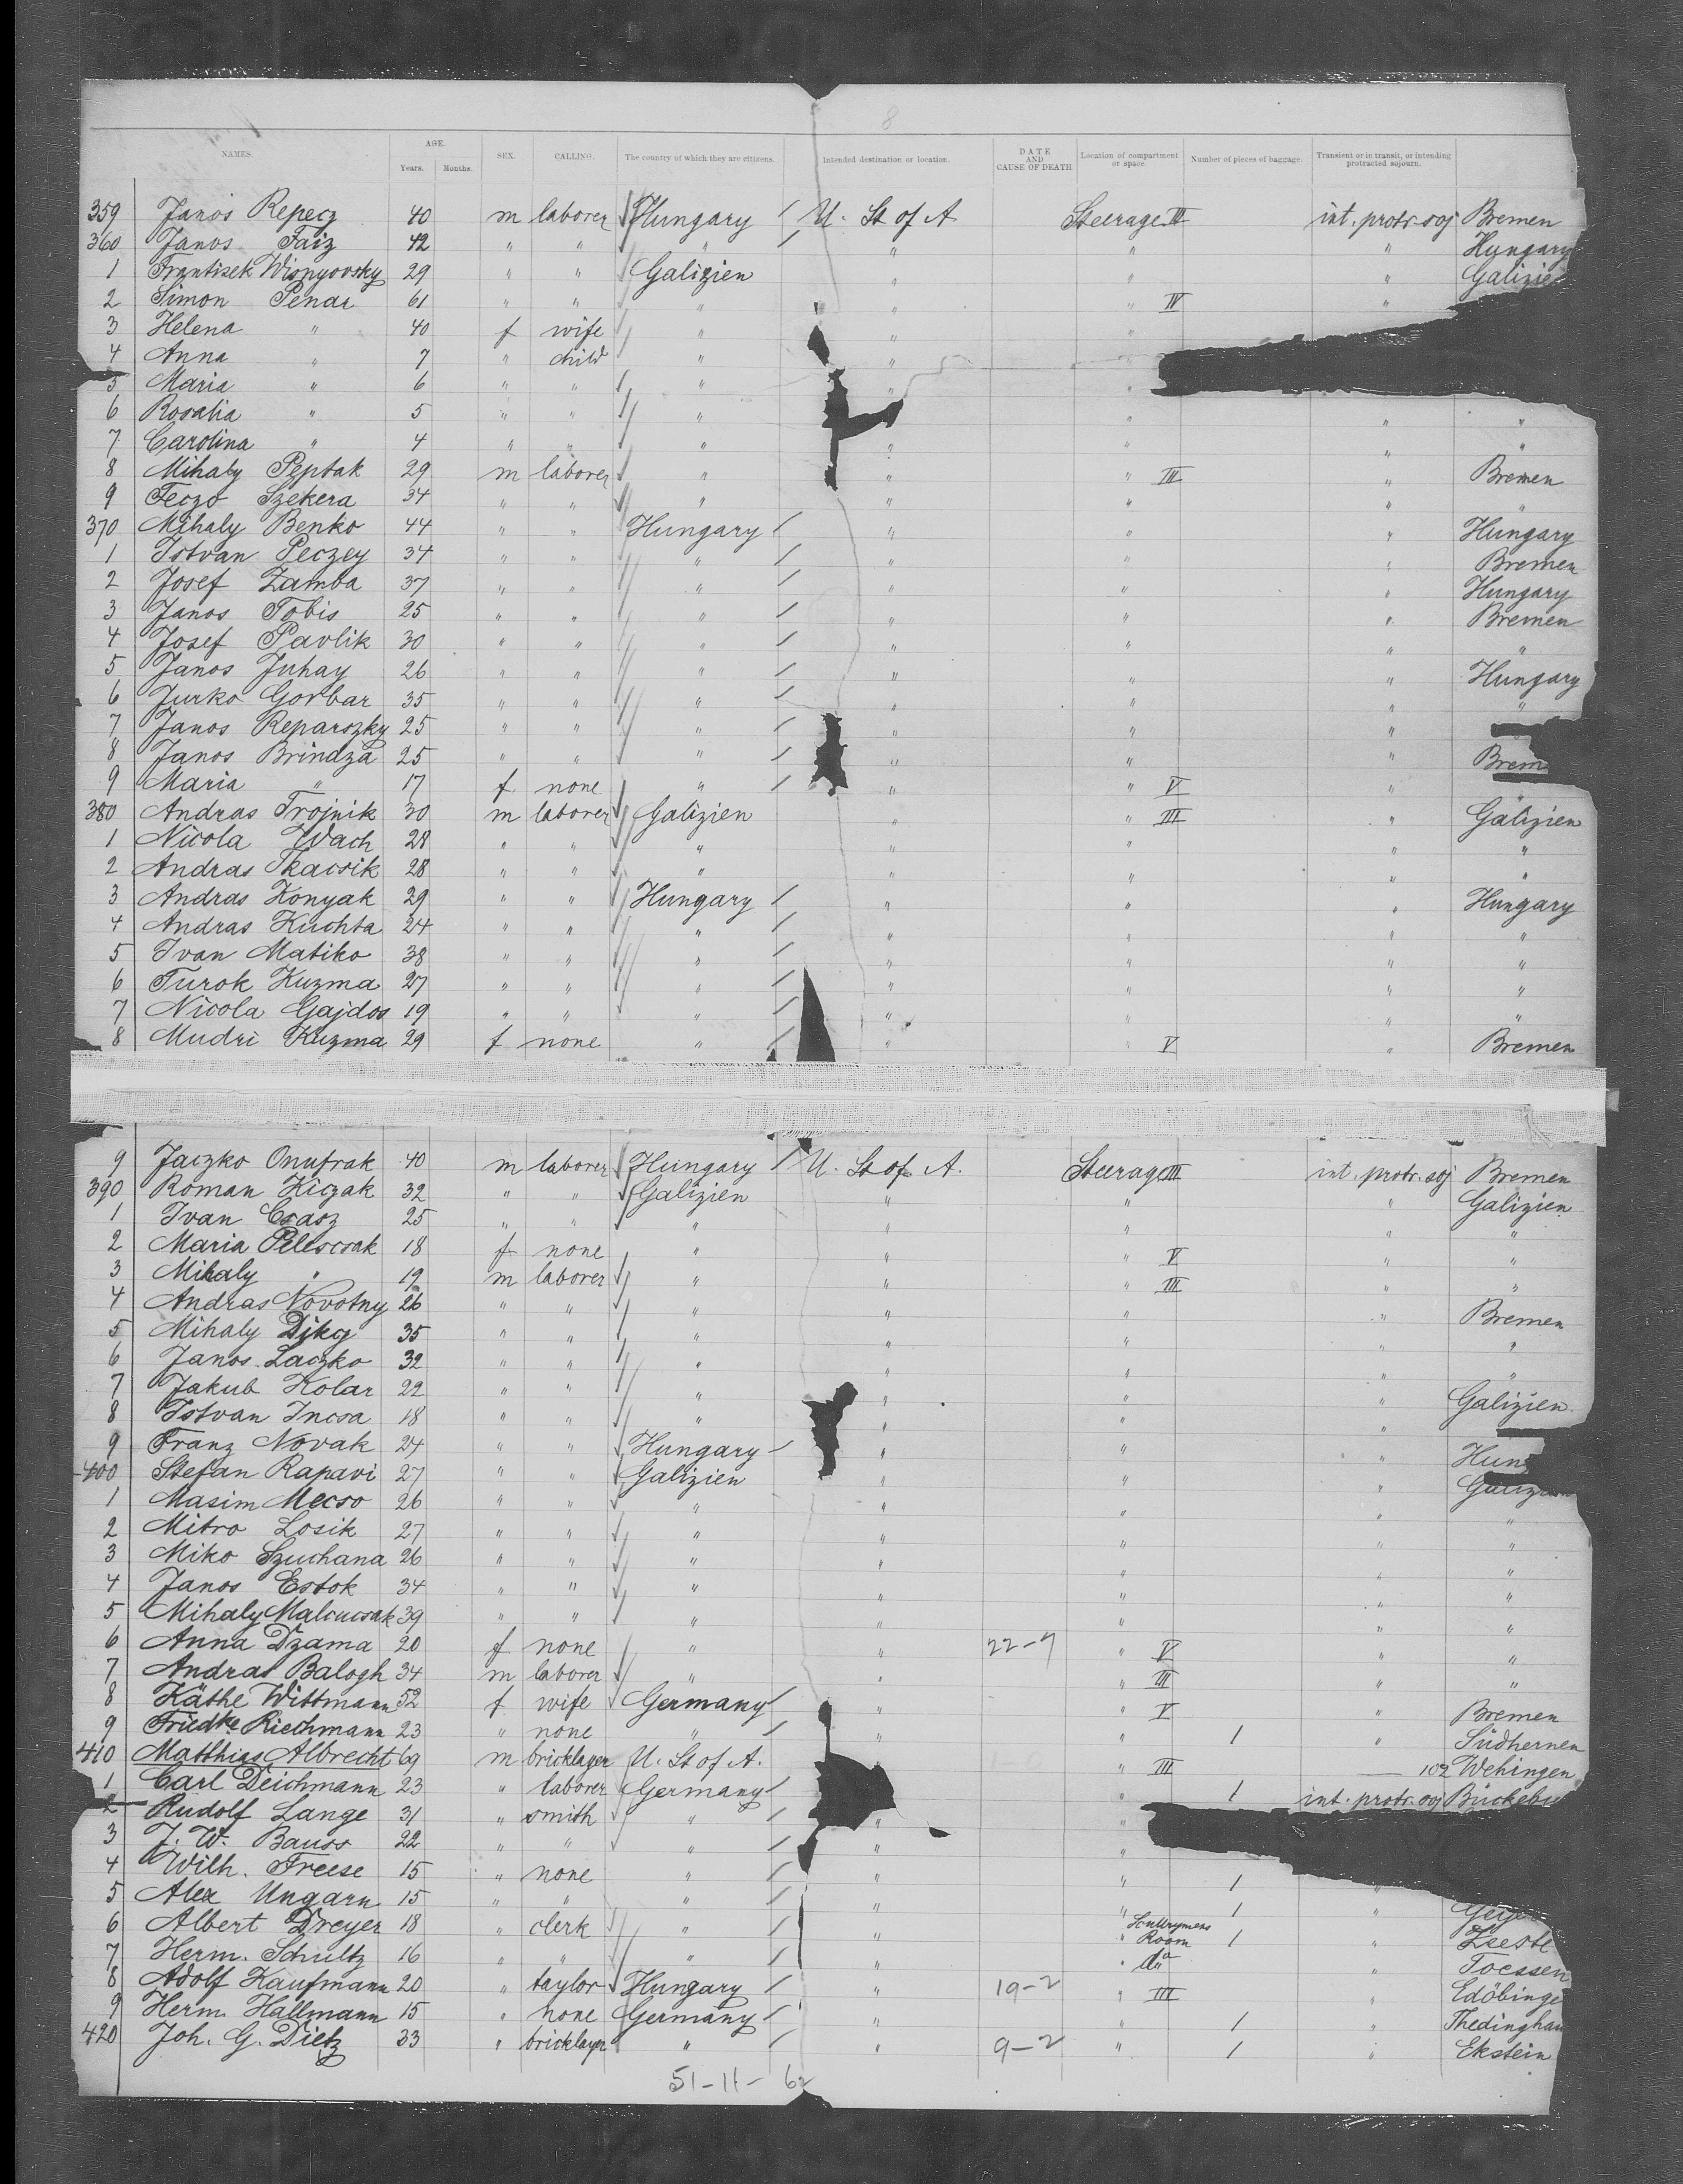 8
NAMES. AGE. Years. Months. SEX. CALLING. The country of which they are citizens. Intended destination or location. DATE AND CAUSE OF DEATH Location of compartment or space. Number of pieces of baggage. Transient or in transit, or intending protracted sojourn.
359 Janos Repecz 40 m laborer Hungary U. St of A Steerage III int. protr. soj Bremen
360 Janos Faiz 42 " " " " " " Hungary
1 Frantisek Wisnyovsky 29 " " Galizien " " "
2 Simon Penar 61 " " " " " IV "
3 Helena " 40 f wife " " "
4 Anna " 7 " child " " "
5 Maria " 6 " " " " "
6 Rosalia " 5 " " " " " "
7 Carolina " 4 " " " " " " "
8 Mihaly Peptak 29 m laborer " " " III " Bremen
9 Feczo Szekera 34 " " " " " " "
370 Mihaly Benko 44 " " Hungary " " " Hungary
1 Istvan Peczey 34 " " " " " " Bremen
2 Josef Zamba 37 " " " " " " Hungary
3 Janos Tobis 25 " " " " " " Bremen
4 Josef Pavlik 30 " " " " " " "
5 Janos Juhay 26 " " " " " " Hungary
6 Jurko Gorbar 35 " " " " " " "
7 Janos Reparszky 25 " " " " " "
8 Janos Brindza 25 " " " " " "
9 Maria " 17 f none " " " V " "
380 Andras Trojnik 30 m laborer Galizien " " III " Galizien
1 Nicola Wach 28 " " " " " " "
2 Andras Tkacsik 28 " " " " " " "
3 Andras Konyak 29 " " Hungary " " " Hungary
4 Andras Kuchta 24 " " " " " " "
5 Ivan Matiko 38 " " " " " " "
6 Turok Kuzma 27 " " " " " " "
7 Nicola Gajdos 19 " " " " " " "
8 Mudri Kuzma 29 f none " " " V " Bremen
9 Jaczko Onufrak 40 m laborer Hungary U. St of A. Steerage III int. protr. soj Bremen
390 Roman Kiczak 32 " " Galizien " " " Galizien
1 Ivan Csasz 25 " " " " " " "
2 Maria Pelescsak 18 f none " " " V " "
3 Mihaly " 19 m laborer " " " III " "
4 Andras Novotny 26 " " " " " " Bremen
5 Mihaly 35 " " " " " " "
6 Janos Laczko 32 " " " " " " "
7 Jakub Kolar 22 " " " " " " Galizien
8 Istvan Incsa 18 " " " " " "
9 Franz Novak 24 " " Hungary " " "
400 Stefan Rapavi 27 " " Galizien " " "
1 Masim Mecso 26 " " " " " " "
2 Mitro Losik 27 " " " " " " "
3 Miko Szuchana 26 " " " " " " "
4 Janos Estok 34 " " " " " " "
5 Mihaly Malcucsak 39 " " " " " " "
6 Anna Dzama 20 f none " " 22-7 " V " "
7 Andras Balogh 34 m laborer " " " III " "
8 Käthe Wittmann 52 f wife Germany " " V " Bremen
9 Friedke Riechmann 23 " none " " " 1 " Südhernen
410 Matthias Albrecht 69 m bricklayer U. St of A. " III — 102 Wehingen
1 Carl Deichmann 23 " laborer Germany " 1 int. protr. soj
2 Rudolf Lange 31 " smith " " "
3 J. W. Bauss 22 " " " " "
4 Wilh. Freese 15 " none " " " 1 "
5 Alex Ungarn 15 " " " " " 1 "
6 Albert Dreyer 18 " clerk " " " Room 1 "
7 Herm. Schultz 16 " " " " " do "
8 Adolf Kaufmann 20 " taylor Hungary " 19-2 " III "
9 Herm. Hallmann 15 " none Germany " " 1 "
420 Joh. G. Dietz 33 " bricklayer " " 9-2 " 1 " Ekstein
51-11-62